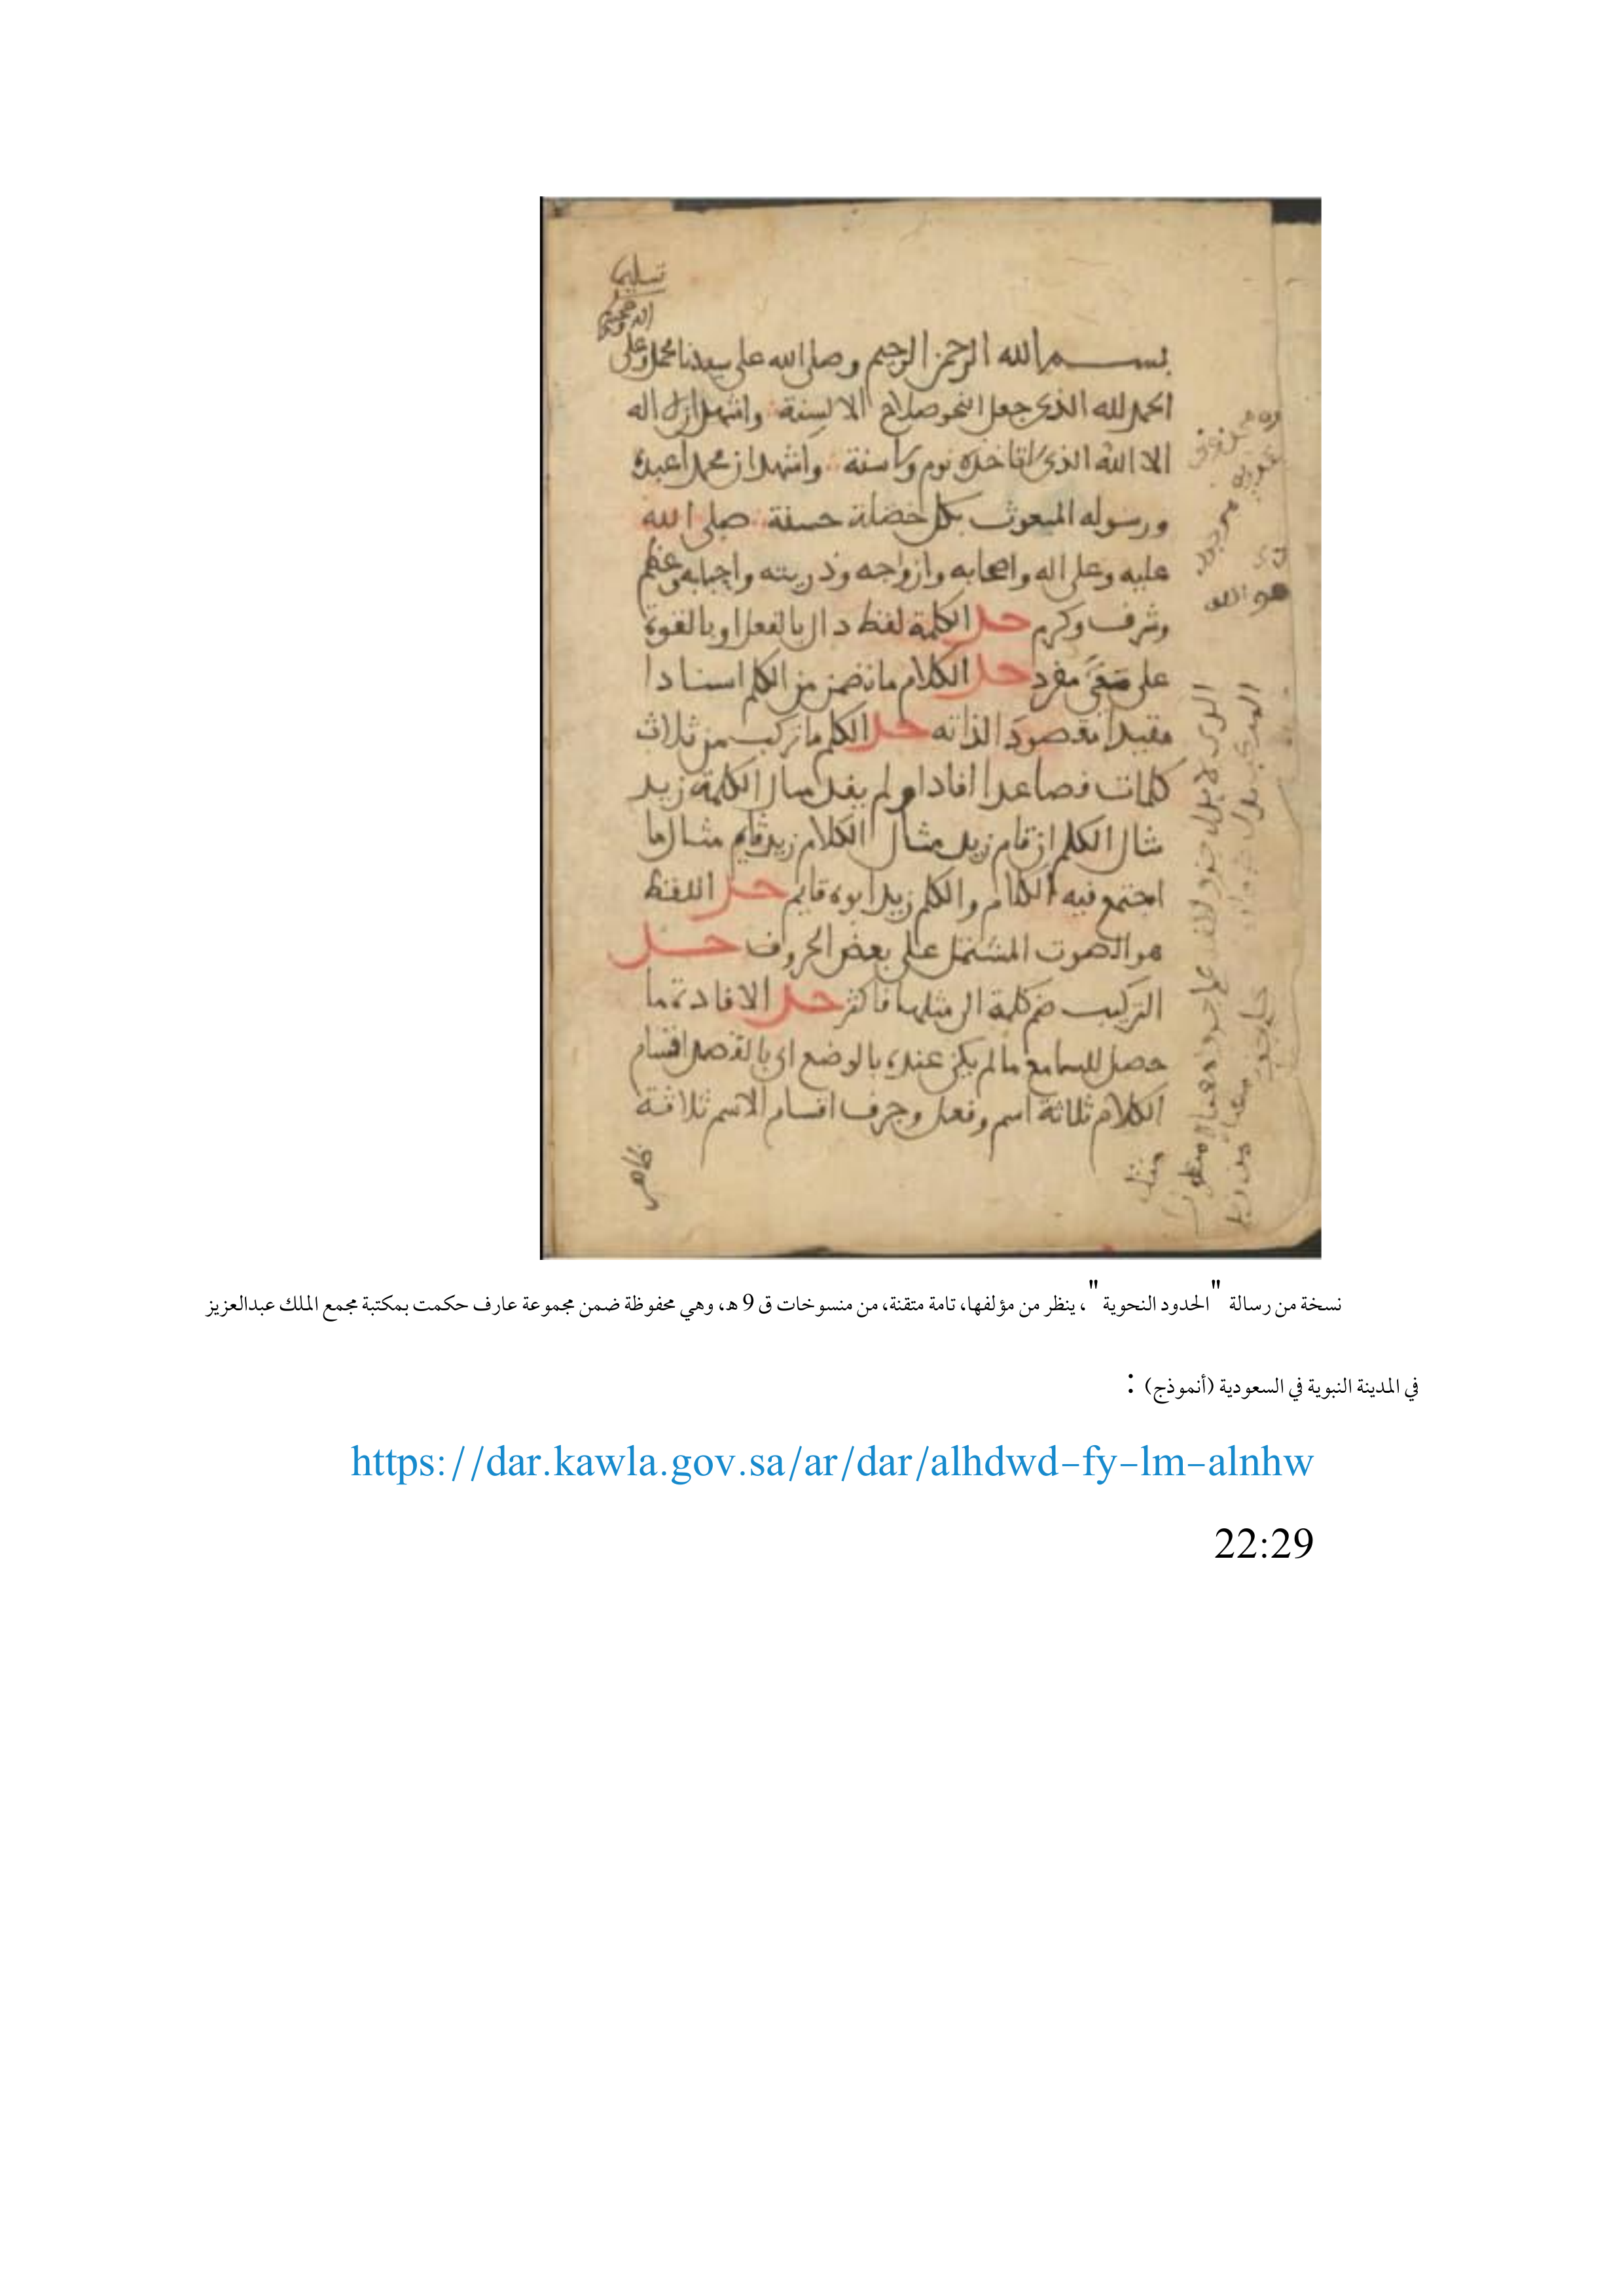 تسليما
اله وصحبه
بسم الله الرحمن الرحيم وصلى الله على سيدنا محمد وعلى
الحمد لله الذى جعل النحو صلاح الالسنة واشهد ان لا اله
الا الله الذى لا تاخذه نوم ولا سنة واشهد ان محمدا عبده
ورسوله المبعوث بكل خصلة حسنة صلى الله
عليه وعلى اله واصحابه وازواجه وذريته واحبابه وعظم
وشرف وكرم حد الكلمة لفظ دال بالفعل او بالقوة
على معنى مفرد حد الكلام ما تضمن من الكلم اسنادا
مفيدا مقصودا لذاته حد الكلم ما تركب من ثلاث
كلمات فصاعدا افاد او لم يفد مثال الكلمة زيد
مثال الكلم ان قام زيد مثال الكلام زيد قايم مثال ما
اجتمع فيه الكلام والكلم زيد ابوه قايم حد اللفظ
هو الصوت المشتمل على بعض الحروف حد
التركيب ضم كلمة الى مثلها فاكثر حد الافادة ما
حصل للسامع ما لم يكن عنده بالوضع اى بالقصد اقسام
الكلام ثلاثة اسم وفعل وحرف اقسام الاسم ثلاثة
ظاهر
مثل
نسخة من رسالة "الحدود النحوية"، ينظر من مؤلفها، تامة متقنة، من منسوخات ق 9 هـ، وهي محفوظة ضمن مجموعة عارف حكمت بمكتبة مجمع الملك عبدالعزيز
في المدينة النبوية في السعودية (أنموذج) :
https://dar.kawla.gov.sa/ar/dar/alhdwd-fy-lm-alnhw
22:29